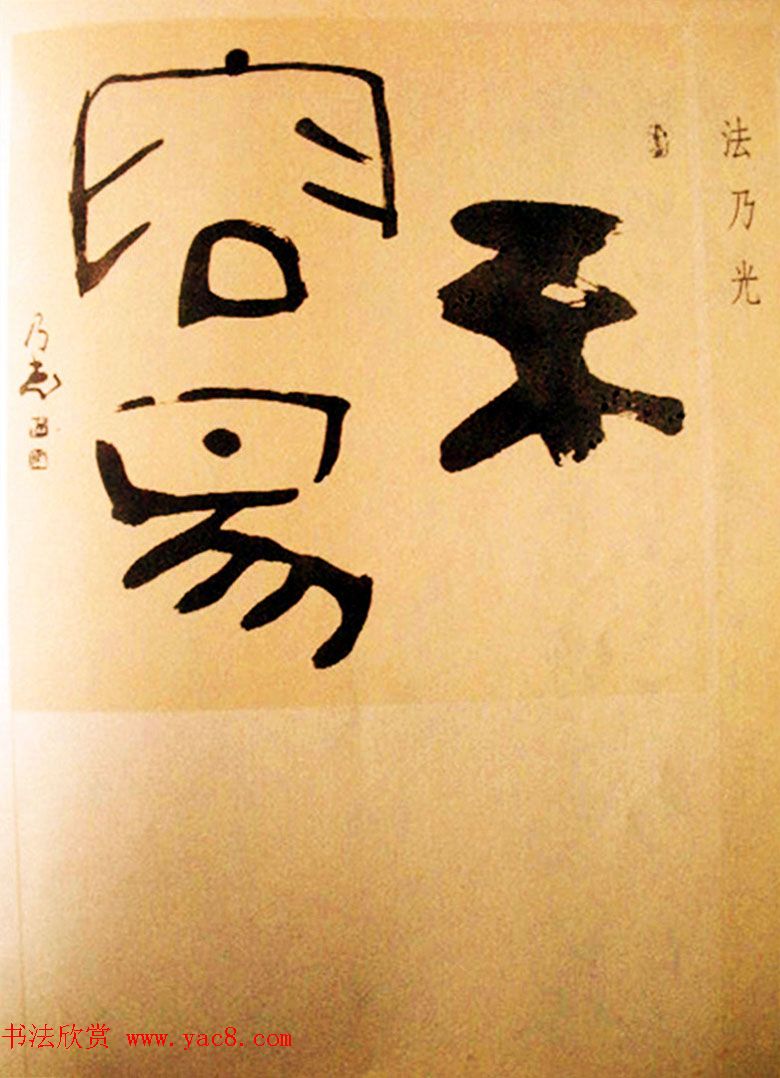 法乃光
不
容易
书法欣赏 www.yac8.com